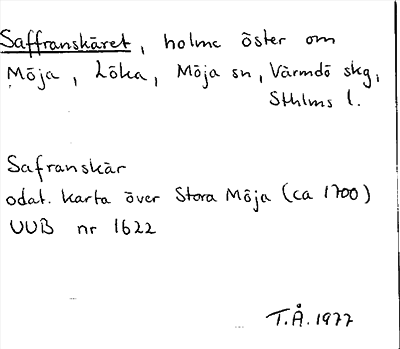 Saffranskäret, holme öster om
Möja, Löka, Möja sn, Värmdö skg,
Sthlms l.
Safranskär
odat. karta över Stora Möja (ca 1700)
UUB nr 1622
T.Å. 1977